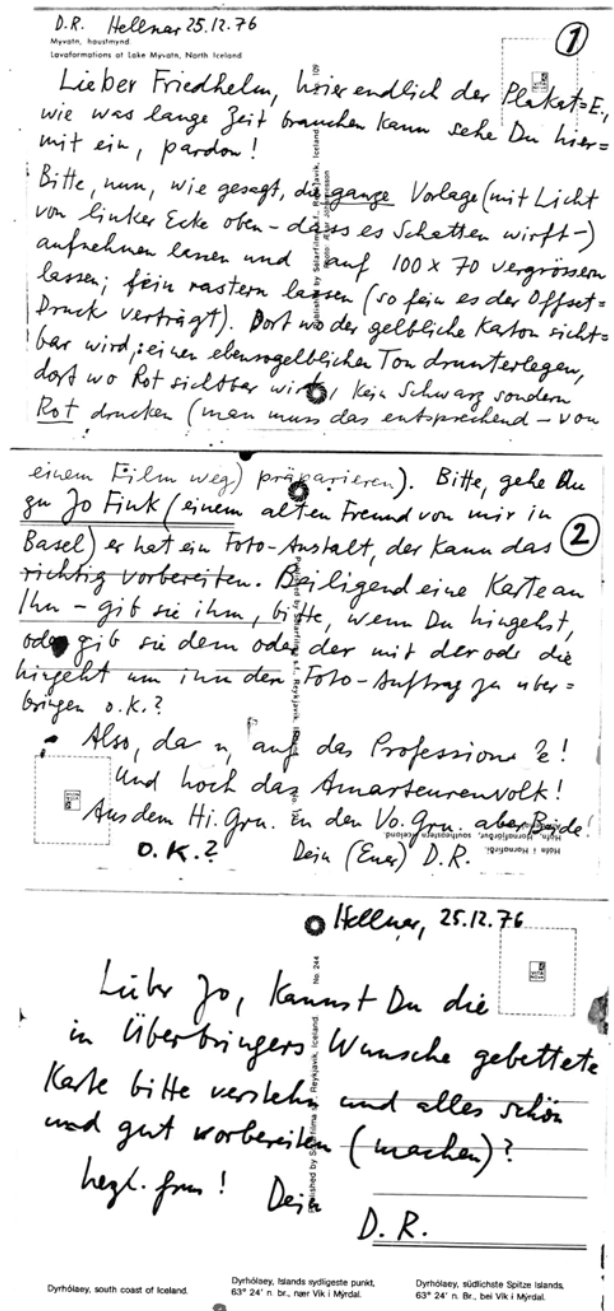 D.R. Hellnar 25.12.76
Myvatn, haustmynd.
Lavaformations at Lake Myvatn, North Iceland
1
Lieber Friedhelm, hier endlich der Plakat=E.,
wie was lange Zeit brauchen kann sehe Du hier=
mit ein, pardon!
Bitte, nun, wie gesagt, die ganze Vorlage (mit Licht
von linker Ecke oben – dass es Schatten wirft –)
aufnehmen lassen und auf 100 x 70 vergrössern
lassen; fein rastern lassen (so fein es der Offset=
Druck verträgt). Dort wo der gelbliche Karton sicht=
bar wird, einen ebensogelblichen Ton drunterlegen,
dort wo Rot sichtbar wird, kein Schwarz sondern
Rot drucken (man muss das entsprechend – von
109
Published by Sólarfilma s.f., Reykjavik, Iceland.
einem Film weg) präparieren). Bitte, gehe Du
zu Jo Fink (einem alten Freund von mir in
Basel) er hat ein Foto-Anstalt, der kann das
2
richtig vorbereiten. Beiligend eine Karte an
Ihn – gib sie ihm, bitte, wenn Du hingehst,
oder gib sie dem oder der mit der ode die
hingeht um ihm den Foto-Auftrag zu über=
bringen o.k.?
Also, da n, auf das Professione e!
Und hoch das Amateurenvolk!
Aus dem Hi.Gru. in den Vo.Gru. aber Beide!
O.K.? Dein (Euer) D.R.
Published by Sólarfilma s.f., Reykjavik,
Höfn í Hornafirði.
Höfn, Hornafjördur, southeastern Iceland
Hellnar, 25.12.76
Lieber Jo, Kannst Du die
in Überbringers Wunsche gebettete
Karte bitte verstehn und alles schön
und gut vorbereiten (machen)?
hezl. grus! Dein
D.R.
Published by Sólarfilma s.f., Reykjavik, Iceland. No. 244
Dyrhólaey, south coast of Iceland.
Dyrhólaey, Islands sydligeste punkt,
63° 24' n. br., nær Vik i Mýrdal.
Dyrhólaey, südlichste Spitze Islands,
63° 24' n. Br., bei Vik i Mýrdal.